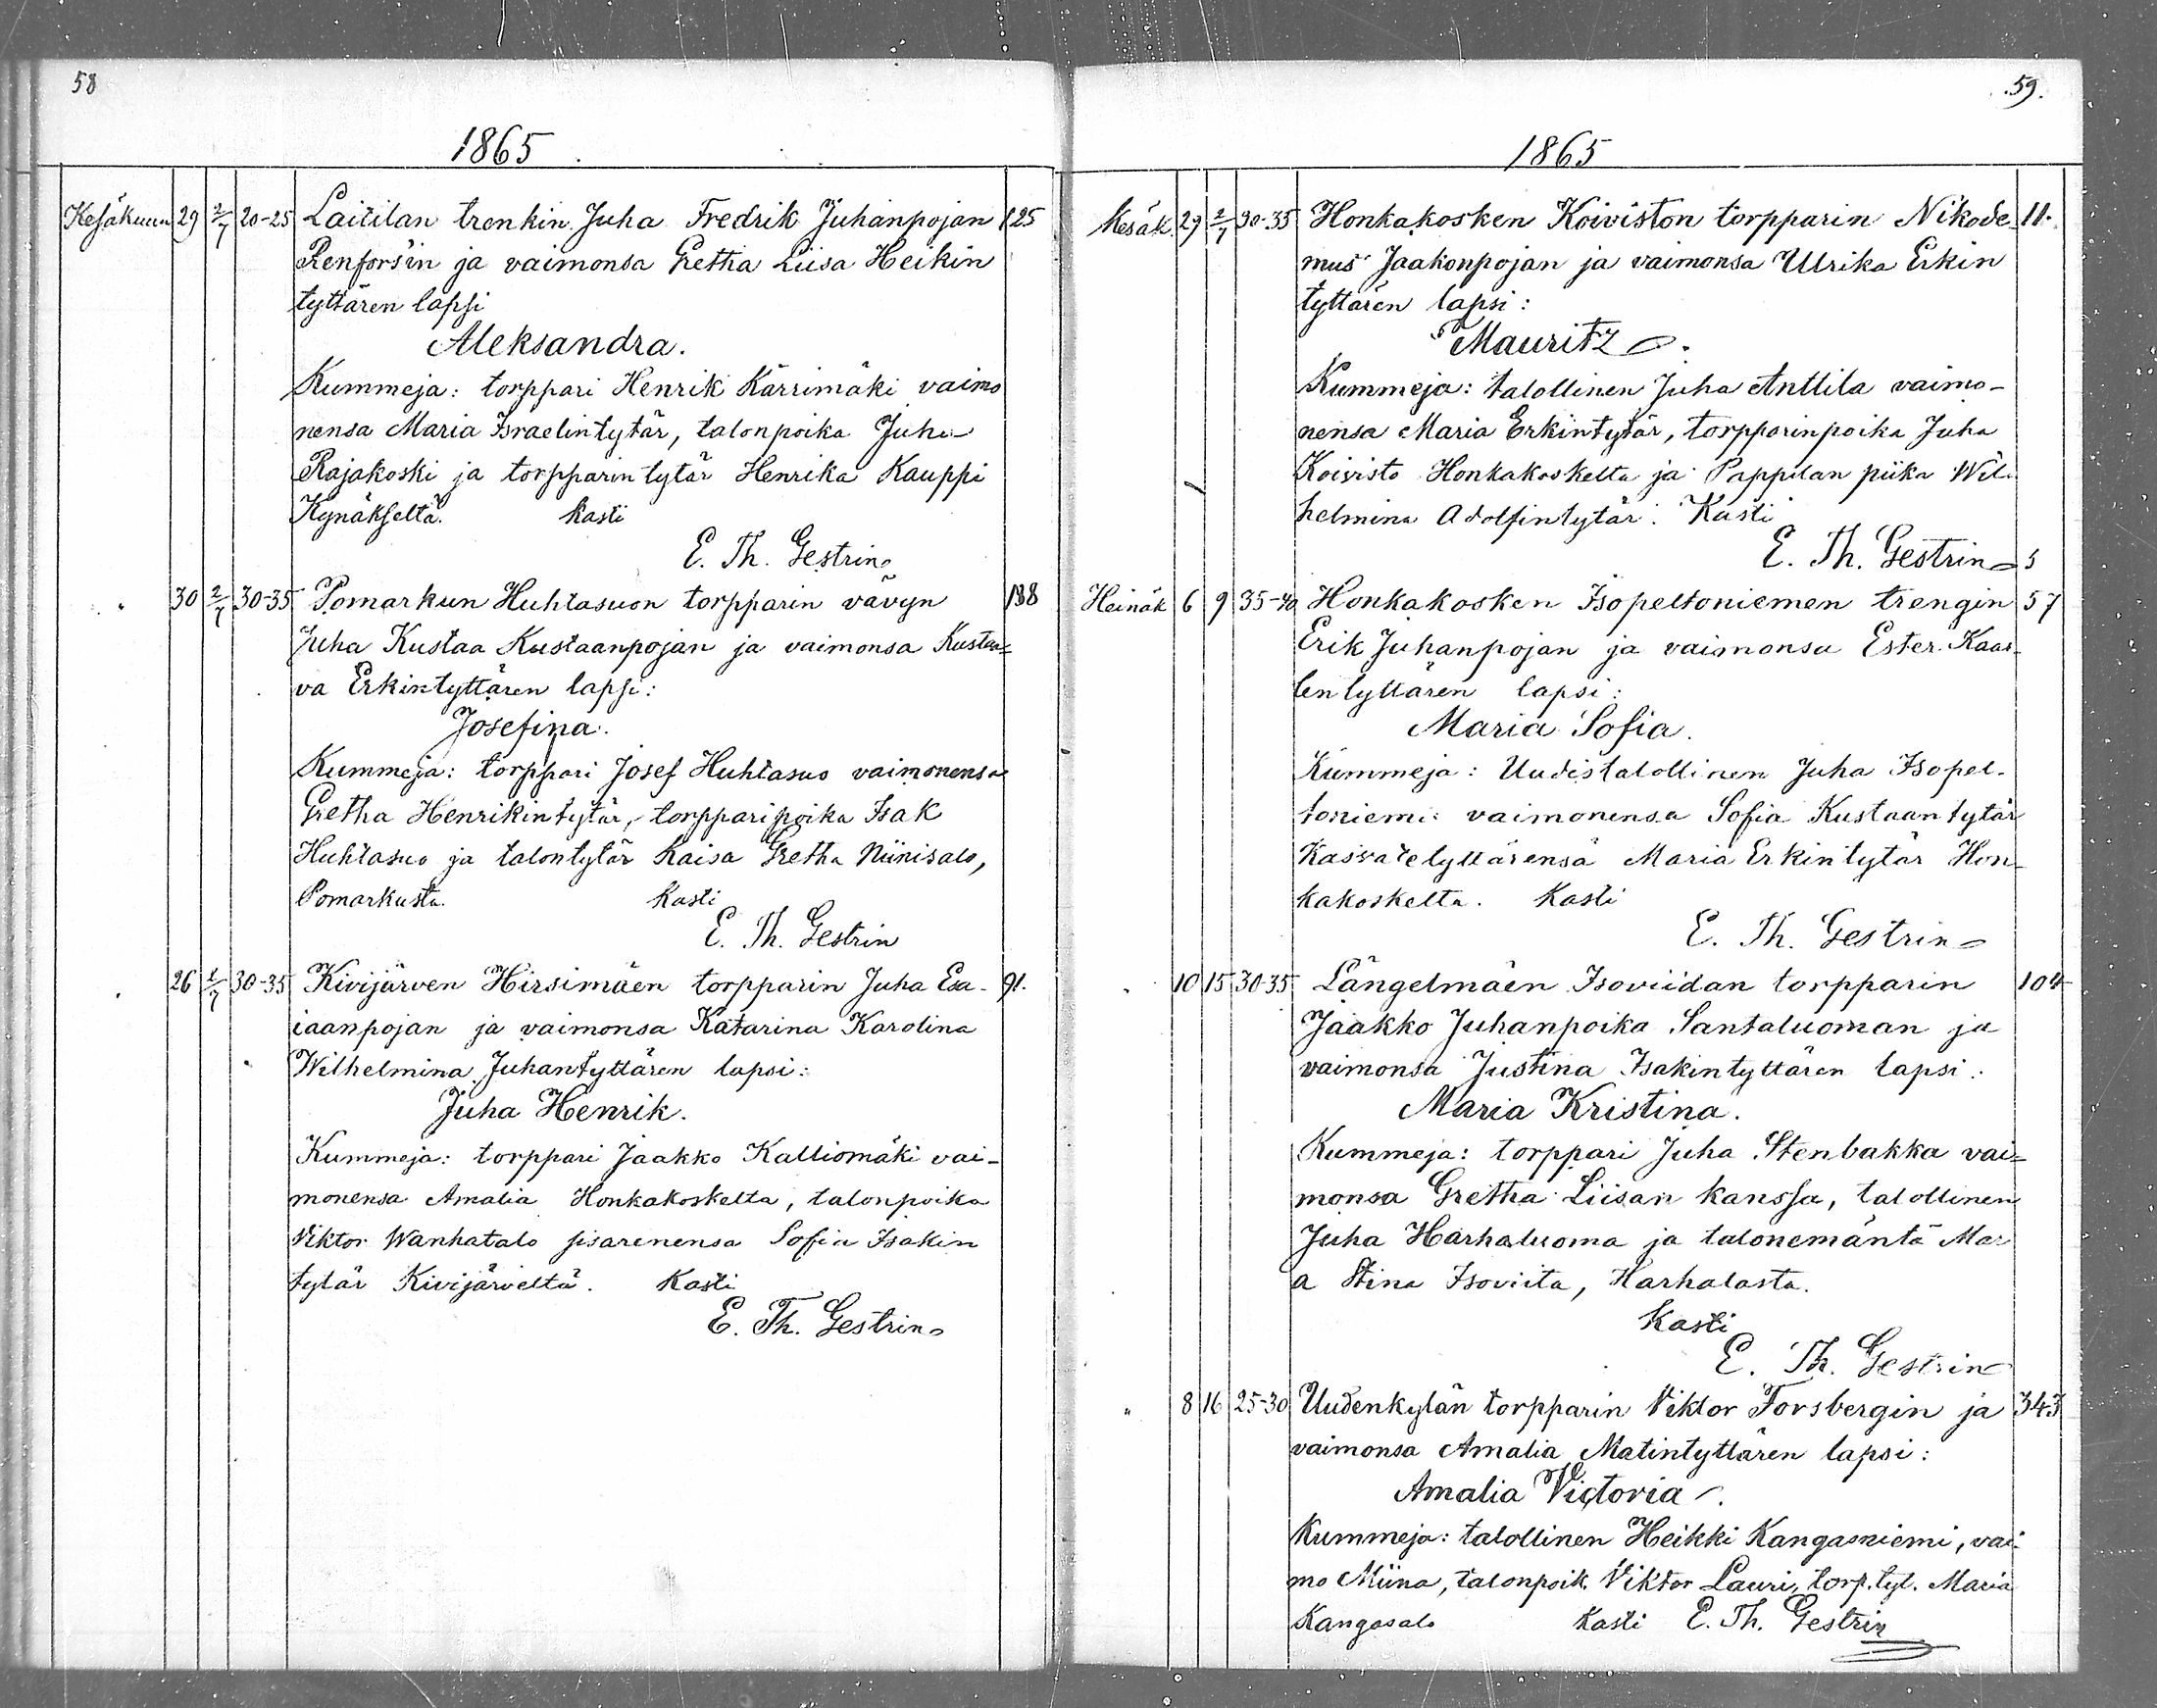 58
1865
Kesäkuun 29 2/7 20-25 Laitilan trenkin Juha Fredrik Juhanpojan 125
Renforsin ja vaimonsa Gretha Liisa Heikin
tyttären lapsi
Aleksandra.
Kummeja: torppari Henrik Kärrimäki vaimo
nensa Maria Israelintytär, talonpoika Juha
Rajakoski ja torpparintytär Henrika Kauppi
Kynäkseltä. Kasti
E. Th. Gestrin
" 30 2/7 30-35 Pomarkun Huhtasuon torpparin vävyn 138
Juha Kustaa Kustaanpojan ja vaimonsa Kusta=
va Erkintyttären lapsi:
Josefina.
Kummeja: torppari Josef Huhtasuo vaimonensa
Gretha Henrikintytär, torpparipoika Isak
Huhtasuo ja talontytär Kaisa Gretha Niinisalo,
Pomarkusta. Kasti
E. Th. Gestrin
" 26 1/7 30-35 Kivijärven Hirsimäen torpparin Juha Esa- 91.
iaanpojan ja vaimonsa Katarina Karolina
Wilhelmina Juhantyttären lapsi:
Juha Henrik.
Kummeja: torppari Jaakko Kalliomäki vai-
monensa Amalia Honkakoskelta, talonpoika
Viktor Wanhatalo sisarenensa Sofia Isakin
tytär Kivijärveltä. Kasti
E. Th. Gestrin
59.
1865
Kesäk. 29 2/7 30-35 Honkakosken Koiviston torpparin Nikode- 11.
mus Jaakonpojan ja vaimonsa Ulrika Erkin
tyttären lapsi:
Mauritz.
Kummeja: talollinen Juha Anttila vaimo-
nensa Maria Erkintytär, torpparinpoika Juha
Koivisto Honkakoskelta ja Pappilan piika Wil-
helmina Adolfintytär. Kasti
E. Th. Gestrin
Heinäk 6 9 35-40 Honkakosken Isopeltoniemen trengin 57
Erik Juhanpojan ja vaimonsa Ester Kaar-
lentyttären lapsi:
Maria Sofia.
Kummeja: Uudistalollinen Juha Isopel-
toniemi vaimonensa Sofia Kustaantytär
Kasvatetyttärensä Maria Erkintytär Hon-
kakoskelta. Kasti
E. Th. Gestrin
" 10 15 30-35 Längelmäen Isoviidan torpparin 104
Jaakko Juhanpoika Santaluoman ja
vaimonsa Justina Isakintyttären lapsi:
Maria Kristina.
Kummeja: torppari Juha Stenbakka vai=
monsa Gretha Liisan kanssa, talollinen
Juha Harhaluoma ja talonemäntä Mar
a Stina Isoviita, Harhalasta.
Kasti
E. Th. Gestrin
" 8 16 25-30 Uudenkylän torpparin Viktor Forsbergin ja 343
vaimonsa Amalia Matintyttären lapsi:
Amalia Victoria.
Kummeja: talollinen Heikki Kangasniemi, vai-
mo Miina, talonpoik. Viktor Lauri, torp.tyt. Maria
Kangasalo Kasti E. Th. Gestrin